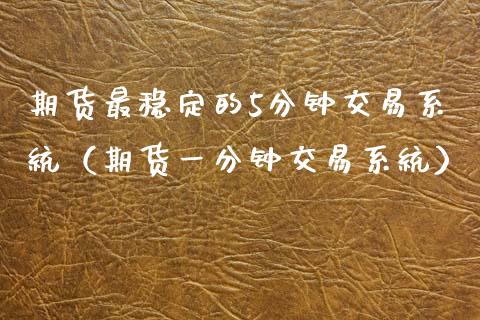 期货最稳定的5分钟交易系
統（期货一分钟交易系統）